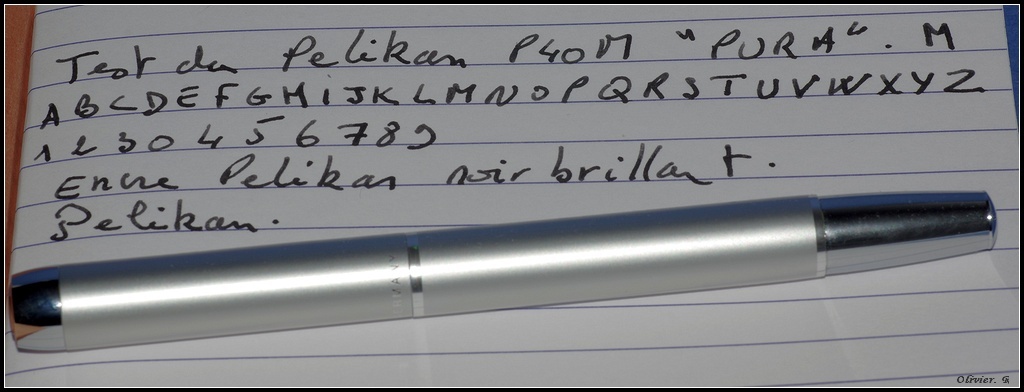 Test du Pelikan P40M "PURA". M
A B C D E F G H I J K L M N O P Q R S T U V W X Y Z
1 2 3 0 4 5 6 7 8 9
Encre Pelikan noir brillant.
Pelikan.
Olivier. G